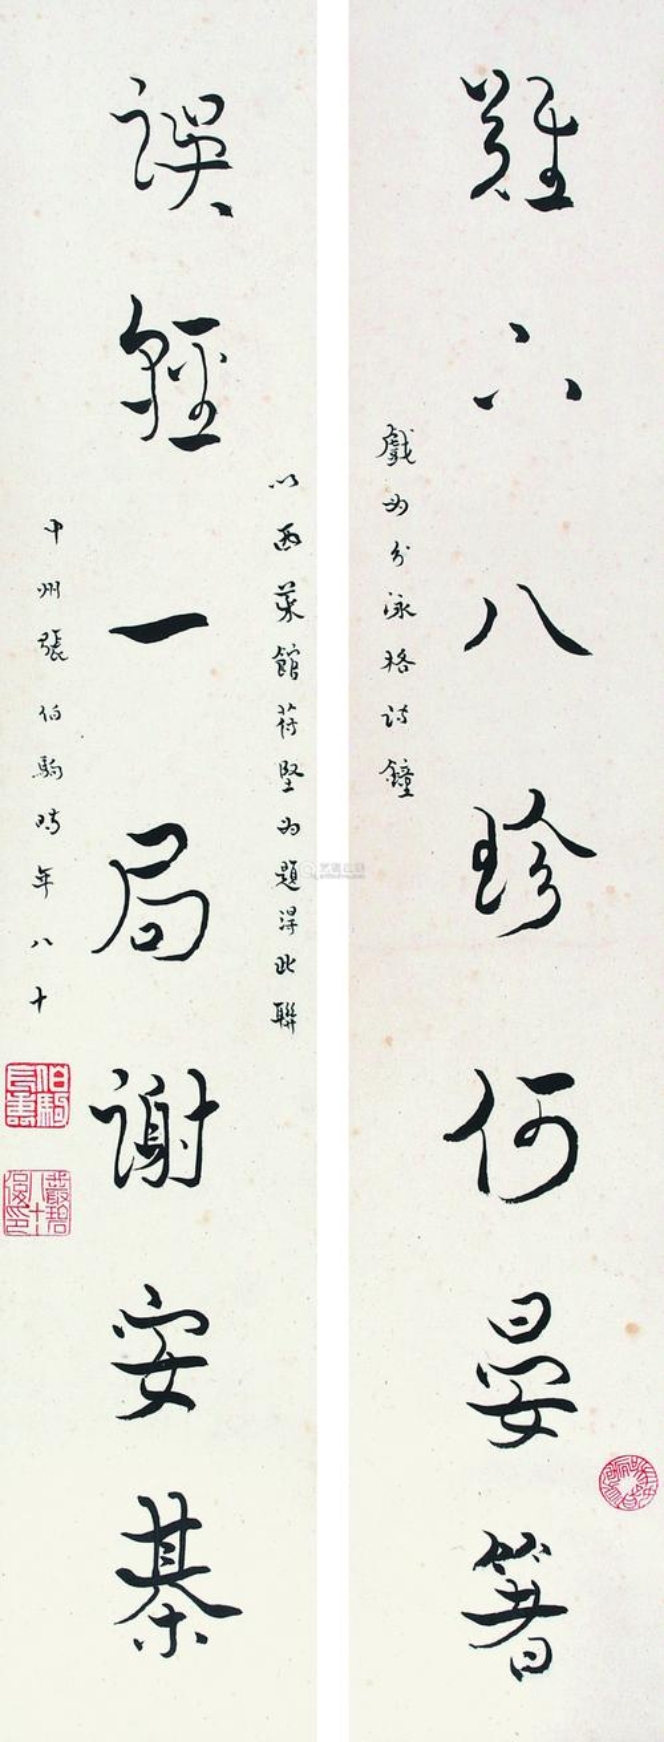 難下八珍何晏箸
戲為分詠格詩鐘
以西菜館苻堅為題得此聯
誤輕一局謝安棊
中州張伯駒時年八十
叢碧八十後印